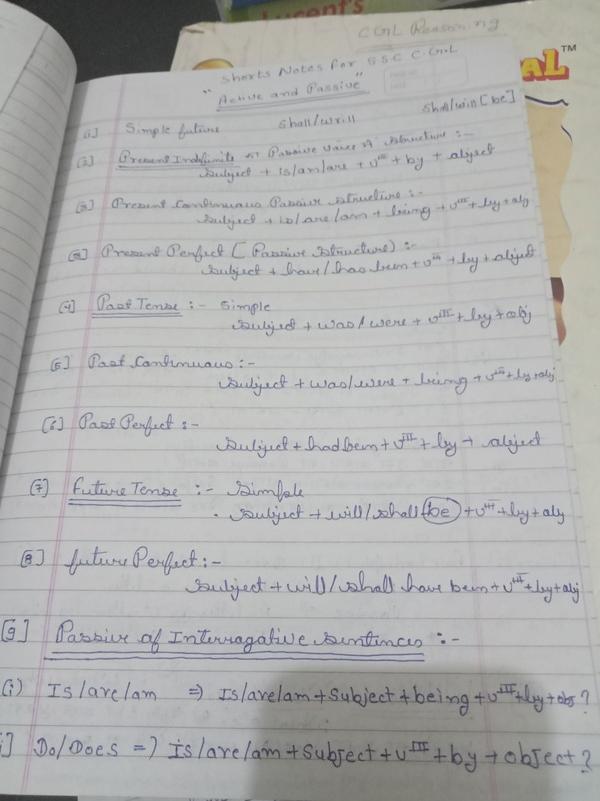 Lucent's
CGL Reasoning
AL™
Shorts Notes for SSC C.G.L
"Active and Passive"
[1] Simple future Shall/will Shall/will [be]
(1) Present Indefinite Passive Voice structure :-
Subject + is/am/are + vIII + by + object
(2) Present Continuous Passive structure :-
Subject + is/are/am + being + vIII + by + obj
(3) Present Perfect (Passive structure) :-
Subject + have/has been + vIII + by + object
(4) Past Tense :- Simple
Subject + was/were + vIII + by + obj
[5] Past Continuous :-
Subject + was/were + being + vIII + by + obj
[6] Past Perfect :-
Subject + had been + vIII + by + object
[7] Future Tense :- Simple
. Subject + will/shall (be) + vIII + by + obj
[8] future Perfect :-
Subject + will/shall have been + vIII + by + obj
[9] Passive of Interragative Sentences :-
(i) Is/are/am => Is/are/am + Subject + being + vIII + by + obj ?
i] Do/Does => is/are/am + Subject + vIII + by + object ?